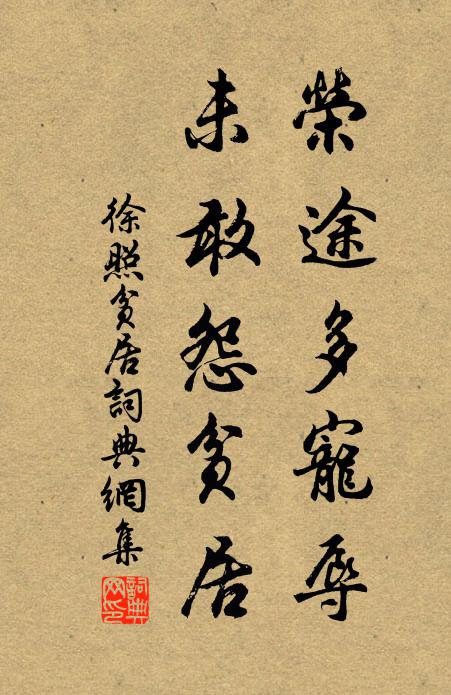 榮途多寵辱
未敢怨貧居
徐照貧居詞典網集
詞典網印